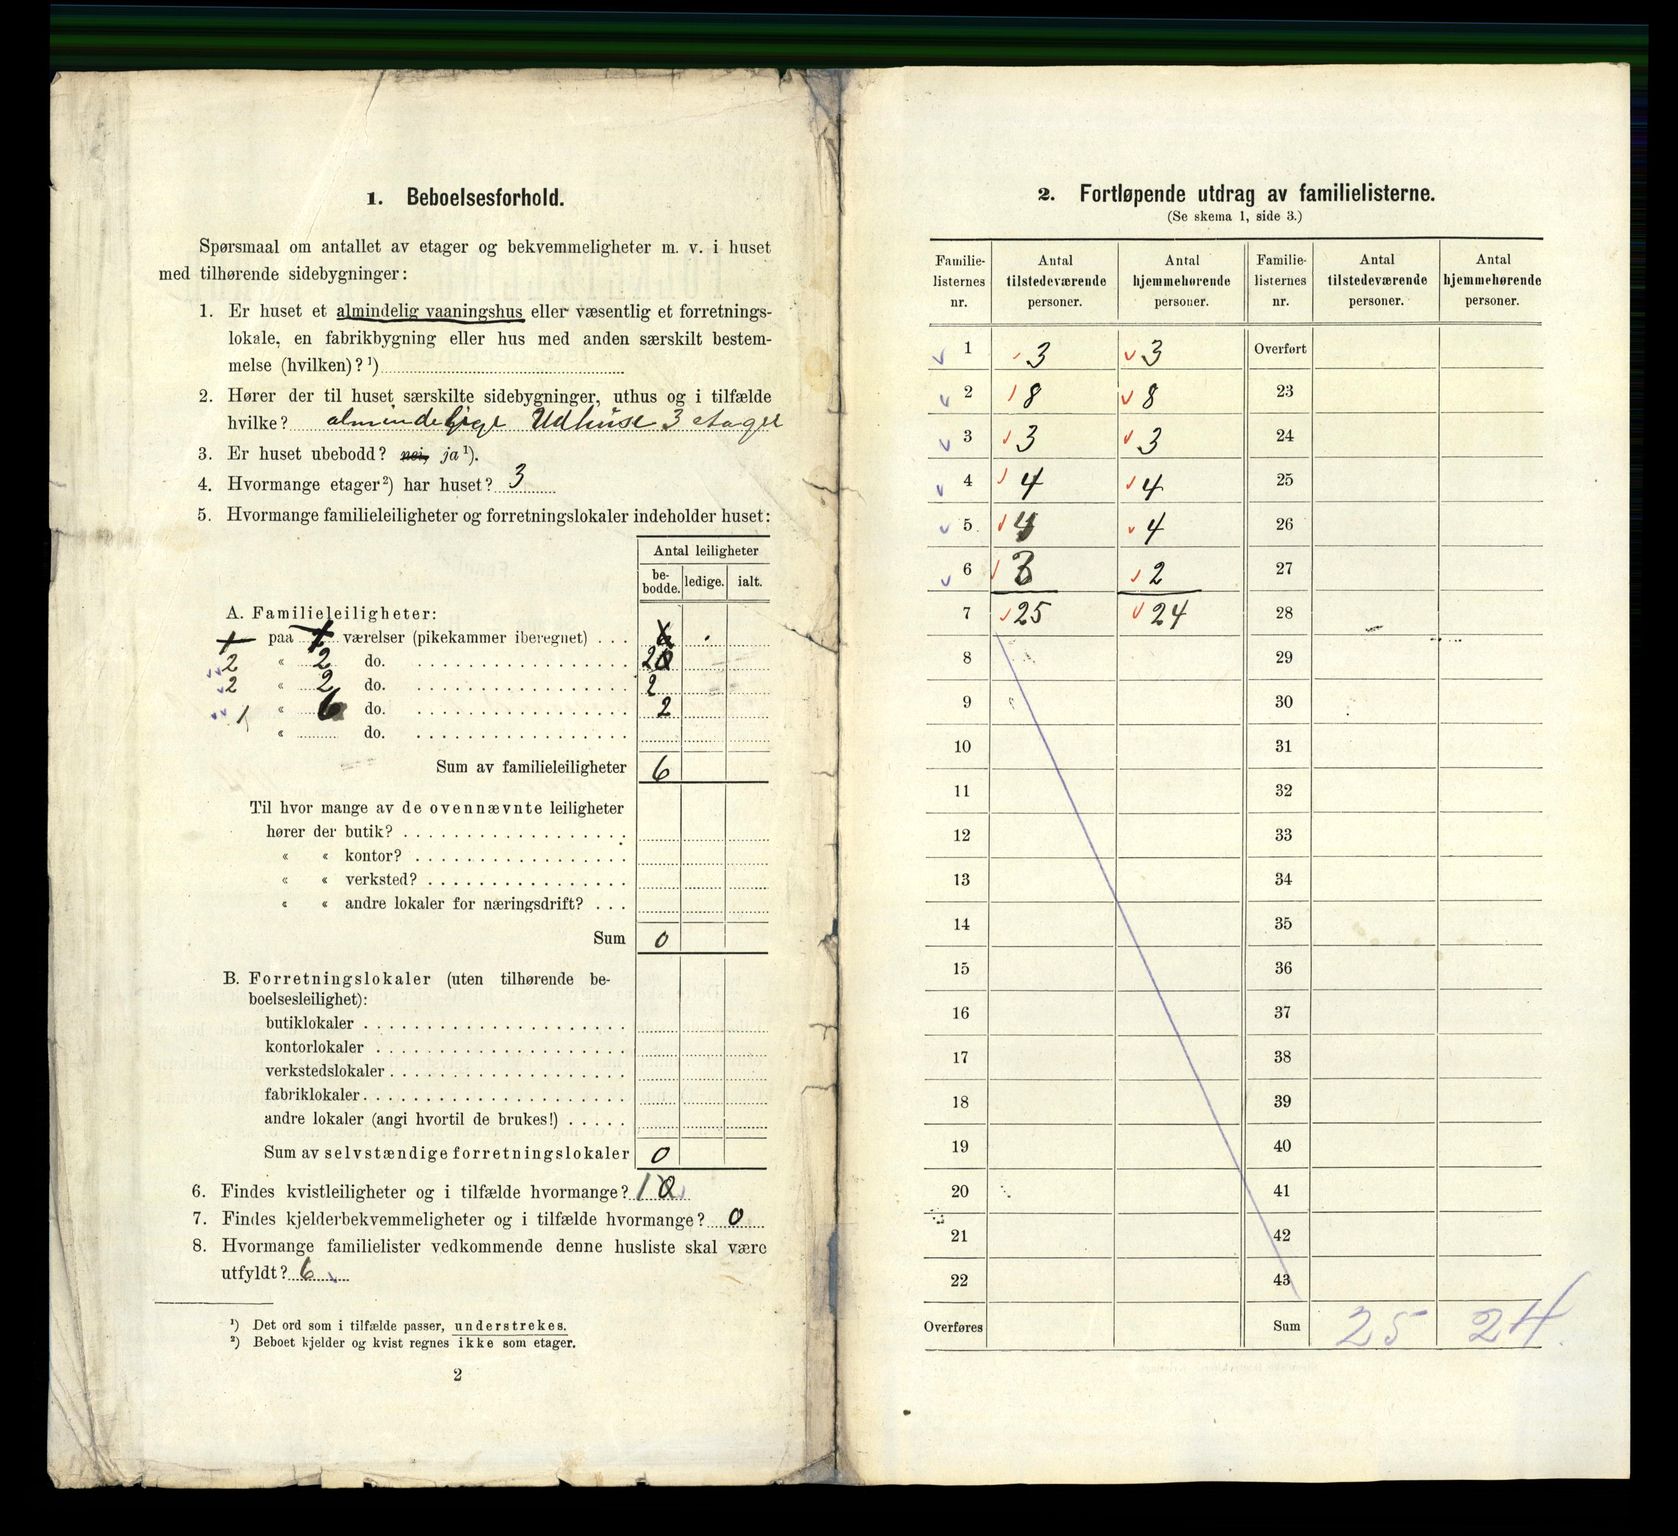 1. Beboelsesforhold.
Spørsmaal om antallet av etager og bekvemmeligheter m. v. i huset
med tilhørende sidebygninger:
1. Er huset et almindelig vaaningshus eller væsentlig et forretnings-
lokale, en fabrikbygning eller hus med anden særskilt bestem-
melse (hvilken)? ¹)
2. Hører der til huset særskilte sidebygninger, uthus og i tilfælde
hvilke? almindelige Udhuse 3 etager
3. Er huset ubebodd? nei, ja ¹).
4. Hvormange etager ²) har huset? 3
5. Hvormange familieleiligheter og forretningslokaler indeholder huset:
Antal leiligheter
be-bodde. ledige. ialt.
A. Familieleiligheter:
paa værelser (pikekammer iberegnet) . . .
2 « 2 do. 2
2 « 2 do. 2
1 « 6 do. 2
« do.
Sum av familieleiligheter 6
Til hvor mange av de ovennævnte leiligheter
hører der butik?
« « kontor?
« « verksted?
« « andre lokaler for næringsdrift? . . .
Sum 0
B. Forretningslokaler (uten tilhørende be-
boelsesleilighet):
butiklokaler
kontorlokaler
verkstedslokaler
fabriklokaler
andre lokaler (angi hvortil de brukes!)
Sum av selvstændige forretningslokaler 0
6. Findes kvistleiligheter og i tilfælde hvormange? 1 0
7. Findes kjelderbekvemmeligheter og i tilfælde hvormange? 0
8. Hvormange familielister vedkommende denne husliste skal være
utfyldt? 6
¹) Det ord som i tilfælde passer, understrekes.
²) Beboet kjelder og kvist regnes ikke som etager.
2
2. Fortløpende utdrag av familielisterne.
(Se skema 1, side 3.)
Familie-listernes nr. Antal tilstedeværende personer. Antal hjemmehørende personer. Familie-listernes nr. Antal tilstedeværende personer. Antal hjemmehørende personer.
1 3 3 Overført
2 8 8 23
3 3 3 24
4 4 4 25
5 4 4 26
6 3 2 27
7 25 24 28
8 29
9 30
10 31
11 32
12 33
13 34
14 35
15 36
16 37
17 38
18 39
19 40
20 41
21 42
22 43
Overføres Sum 25 24